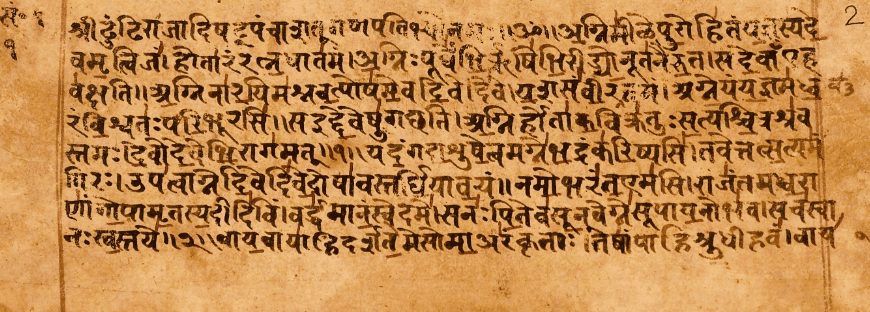 श्रीढुंढिराजादिषट्पंचाशतूगणपतिभ्योनमः॥ॐ॥अग्निमीळेपुरोहितंयज्ञस्यदे
वमृत्विजं।होतारंरत्नधातमं।अग्निःपूर्वेभिर्ऋषिभिरीड्योनूतनैरुत।सदेवाँएह
वक्षति॥अग्निनारयिमश्नवत्पोषमेवदिवेदिवे।यशसंवीरवत्तमं।अग्नेयंयज्ञमध्व
रंविश्वतःपरिभूरसि।सइद्देवेषुगछति।अग्निर्होताकविक्रतुःसत्यश्चित्रश्रव
स्तमः।देवोदेवेभिरागमत्॥१॥यदंगदाशुषेत्वमग्नेभद्रंकरिष्यसि।तवेत्तत्सत्यमं
गिरः।उपत्वाग्नेदिवेदिवेदोषावस्तर्धियावयं॥नमोभरंतएमसि।राजंतमध्वरा
णांगोपामृतस्यदीदिविं।वर्द्धमानंस्वेदमे।सनःपितेवसूनवेग्नेसूपायनोभव।सचस्वा
नःस्वस्तये॥२॥वायवायाहिदर्शतेमेसोमाअरंकृताः।तेषांपाहिश्रुधीहवं।वाय
2